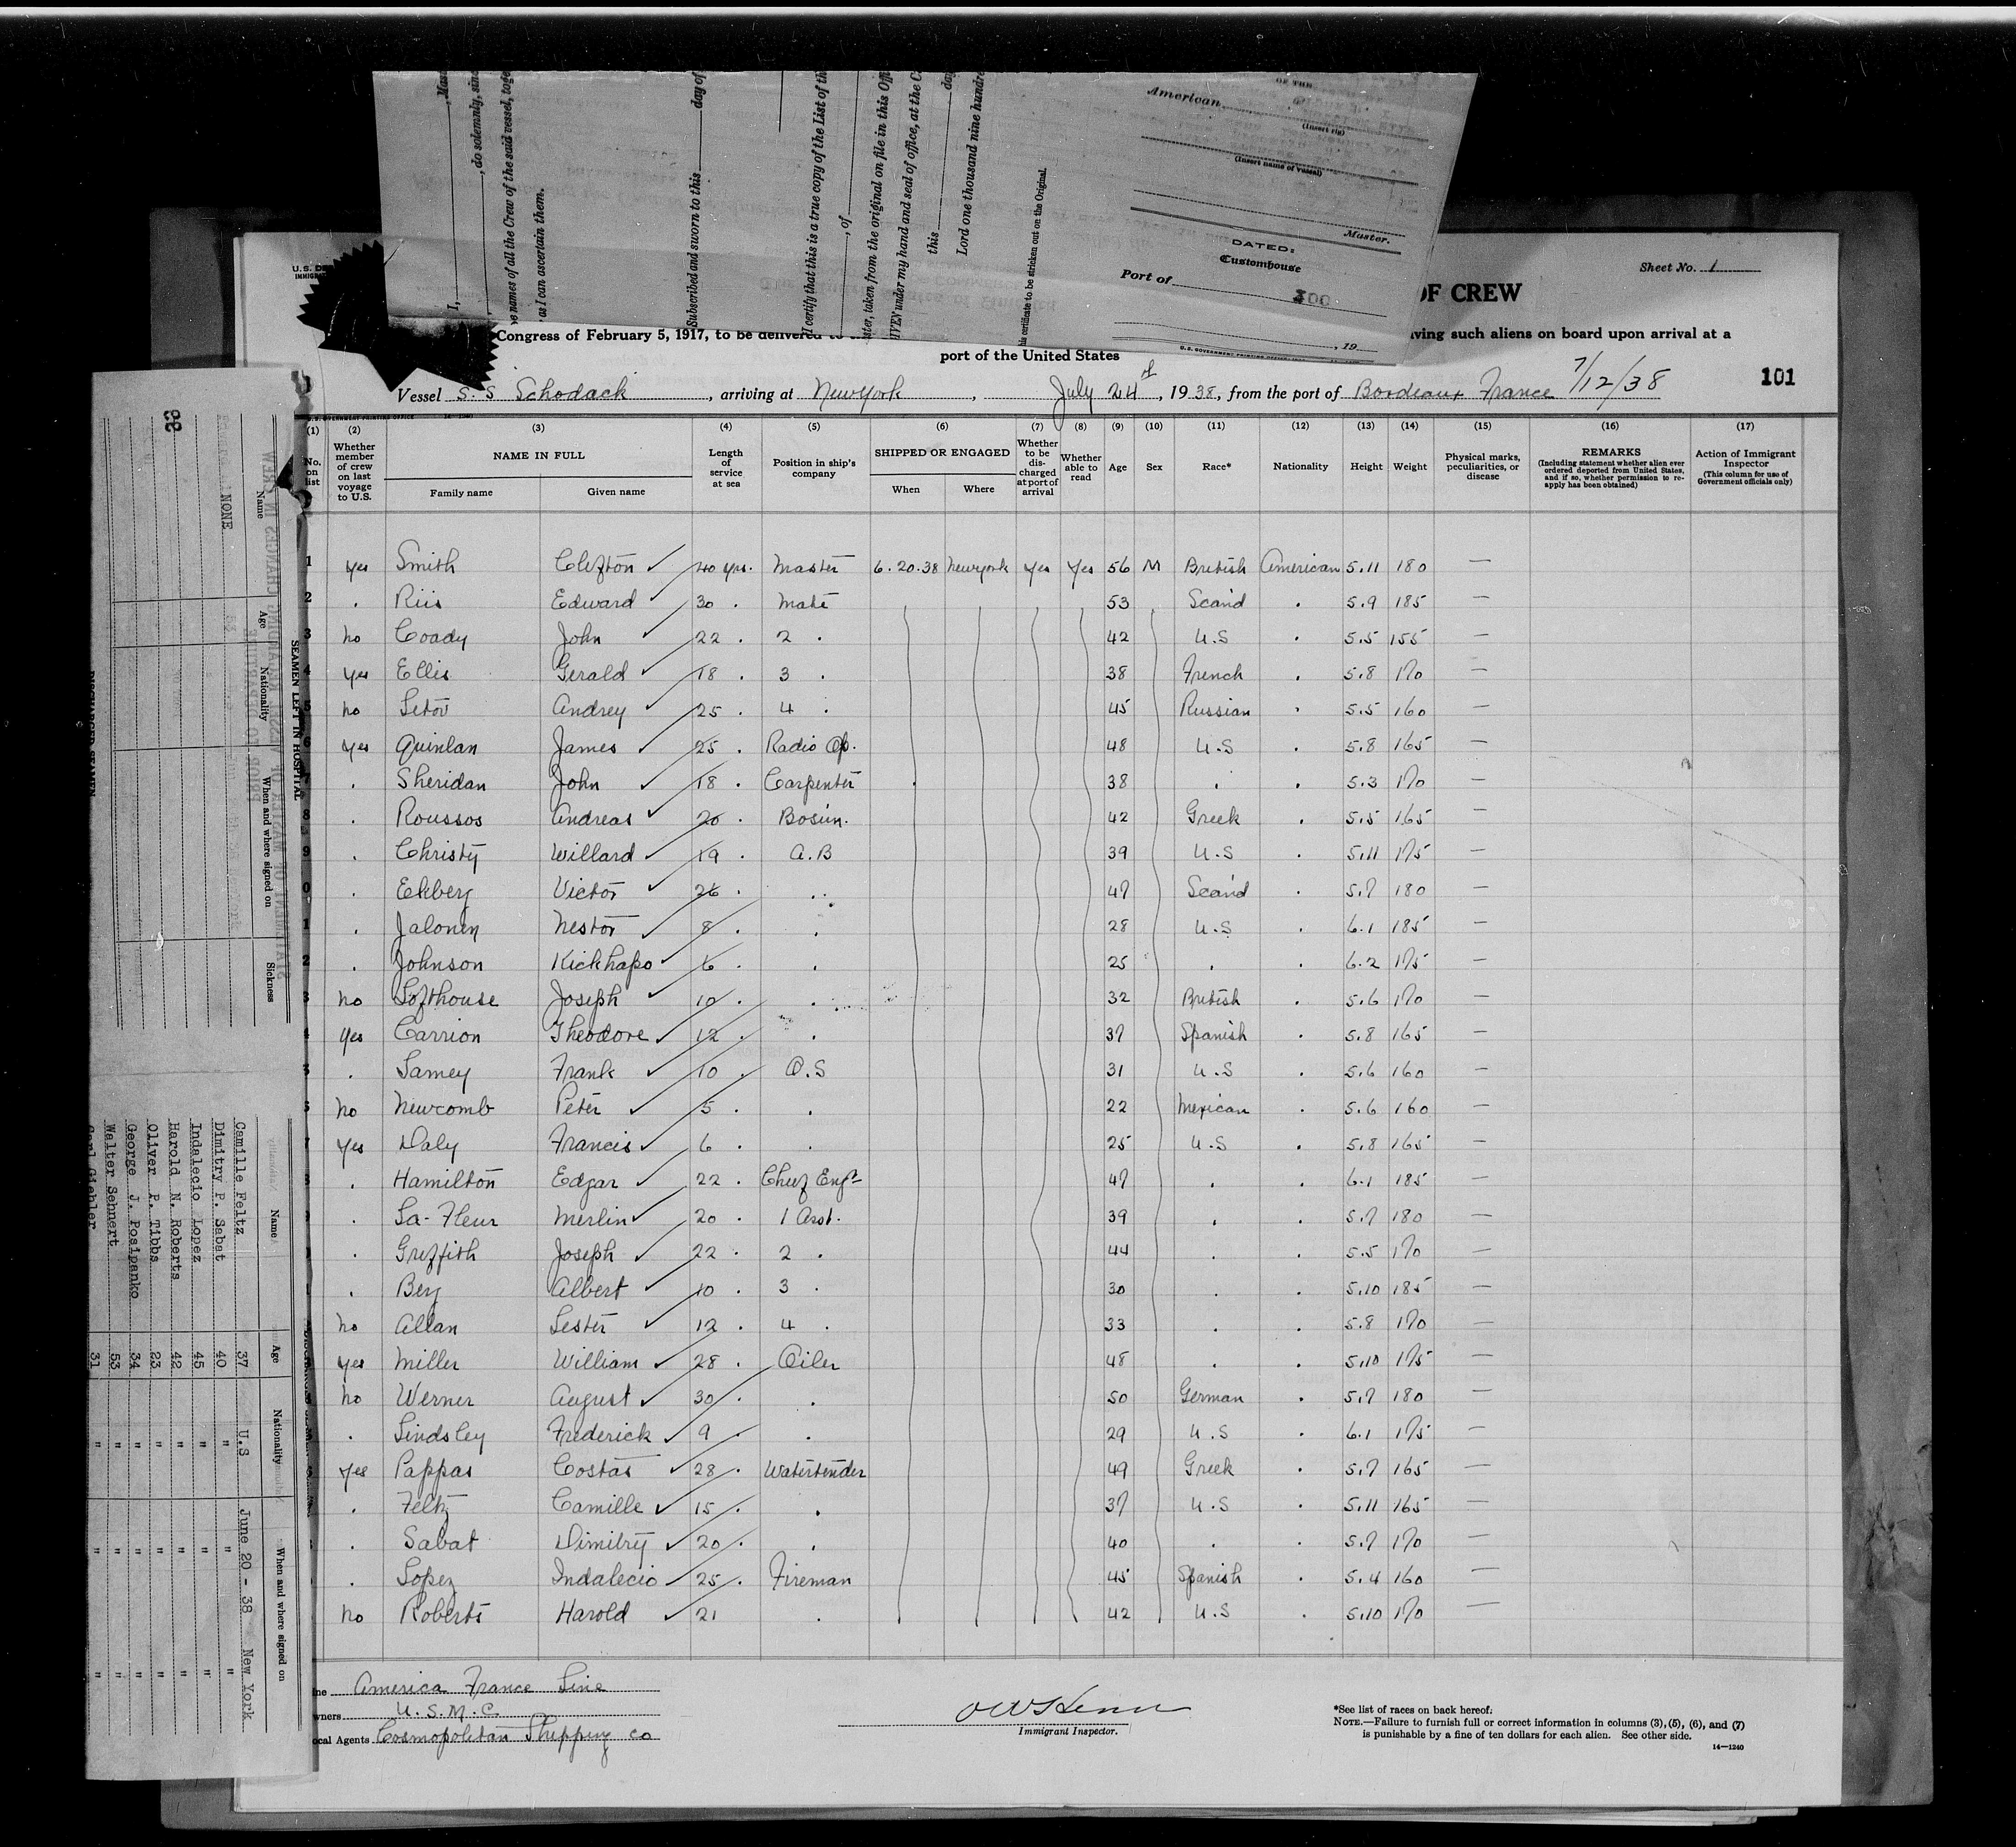 I, , Mast
, do solemnly, sinc
e names of all the Crew of the said vessel, toge
as I can ascertain them.
Subscribed and sworn to this day of
I certify that this is a true copy of the List of th
, of
ster, taken from the original on file in this Offi
IVEN under my hand and seal of office, at the C
this day
Lord one thousand nine hundre
his certificate to be stricken out on the Original.
OF THE
American
(Insert rig)
(Insert name of vessel)
Master.
DATED:
Customhouse
Port of
300
, 19
U. S. GOVERNMENT PRINTING OFFICE
U. S. DE
IMMIGRA
Sheet No. 1
OF CREW
Congress of February 5, 1917, to be delivered to
aving such aliens on board upon arrival at a
port of the United States
Vessel S. S Schodack, arriving at New York, July 24th, 1938, from the port of Bordeaux France 7/12/38
101
(1) (2) (3) (4) (5) (6) (7) (8) (9) (10) (11) (12) (13) (14) (15) (16) (17)
No. on list
Whether member of crew on last voyage to U.S.
NAME IN FULL
Family name
Given name
Length of service at sea
Position in ship's company
SHIPPED OR ENGAGED
When
Where
Whether to be discharged at port of arrival
Whether able to read
Age
Sex
Race*
Nationality
Height
Weight
Physical marks, peculiarities, or disease
REMARKS
(Including statement whether alien ever ordered deported from United States, and if so, whether permission to reapply has been obtained)
Action of Immigrant Inspector
(This column for use of Government officials only)
1 yes Smith Clifton ✓ 40 yrs. Master 6.20.38 New york Yes Yes 56 M British American 5.11 180 —
2 . Riis Edward ✓ 30 . Mate 53 Scand . 5.9 185 —
3 no Coady John ✓ 22 . 2 . 42 U.S . 5.5 155 —
4 yes Ellis Gerald ✓ 18 . 3 . 38 French . 5.8 170 —
5 no Letov Andrey ✓ 25 . 4 . 45 Russian . 5.5 160 —
6 yes Quinlan James ✓ 25 . Radio Op. 48 U.S . 5.8 165 —
7 . Sheridan John ✓ 18 . Carpenter 38 . . 5.3 170 —
8 . Roussos Andreas ✓ 20 . Bosun. 42 Greek . 5.5 165 —
9 . Christy Willard ✓ 19 . A.B 39 U.S . 5.11 175 —
0 . Ekberg Victor ✓ 26 . . 47 Scand . 5.7 180 —
1 . Jalonen Nestor ✓ 8 . . 28 U.S . 6.1 185 —
2 . Johnson Kickhapo ✓ 6 . . 25 . . 6.2 175 —
3 no Lofthouse Joseph ✓ 10 . . 32 British . 5.6 170 —
4 yes Carrion Theodore ✓ 12 . . 37 Spanish . 5.8 165 —
5 . Lamey Frank ✓ 10 . O.S 31 U.S . 5.6 160 —
6 no Newcomb Peter ✓ 5 . . 22 Mexican . 5.6 160 —
7 yes Daly Francis ✓ 6 . . 25 U.S . 5.8 165 —
8 . Hamilton Edgar ✓ 22 . Chief Engr 47 . . 6.1 185 —
. La-Fleur Merlin ✓ 20 . 1 Asst. 39 . . 5.7 180 —
. Griffith Joseph ✓ 22 . 2 . 44 . . 5.5 170 —
. Berg Albert ✓ 10 . 3 . 30 . . 5.10 185 —
no Allan Lester ✓ 12 . 4 . 33 . . 5.8 170 —
yes Miller William ✓ 28 . Oiler 48 . . 5.10 175 —
no Werner August ✓ 30 . . 50 German . 5.7 180 —
. Lindsley Frederick ✓ 9 . . 29 U.S . 6.1 175 —
yes Pappas Costas ✓ 28 . Watertender 49 Greek . 5.7 165 —
. Feltz Camille ✓ 15 . . 37 U.S . 5.11 165 —
. Sabat Dimitry ✓ 20 . . 40 . . 5.7 170 —
. Lopez Indalecio ✓ 25 . Fireman 45 Spanish . 5.4 160 —
no Roberts Harold ✓ 21 . 42 U.S . 5.10 170 —
ine America France Line
wners U.S.M.C
ocal Agents Cosmopolitan Shipping Co
Immigrant Inspector.
*See list of races on back hereof.
NOTE.—Failure to furnish full or correct information in columns (3), (5), (6), and (7)
is punishable by a fine of ten dollars for each alien. See other side.
14—1240
88
SEAMEN LEFT IN HOSPITAL
Name Age Nationality When and where signed on Sickness
NONE
DISCHARGED SEAMEN
Name Age Nationality When and where signed on
Camille Feltz 37 U.S June 20 - 38 New York
Dimitry P. Sabat 40 " " "
Indalecio Lopez 45 " " "
Harold N. Roberts 42 " " "
Oliver P. Tibbs 23 " " "
George J. Posipanko 34 " " "
Walter Sehnert 53 " " "
Carl Giehler 31 " " "